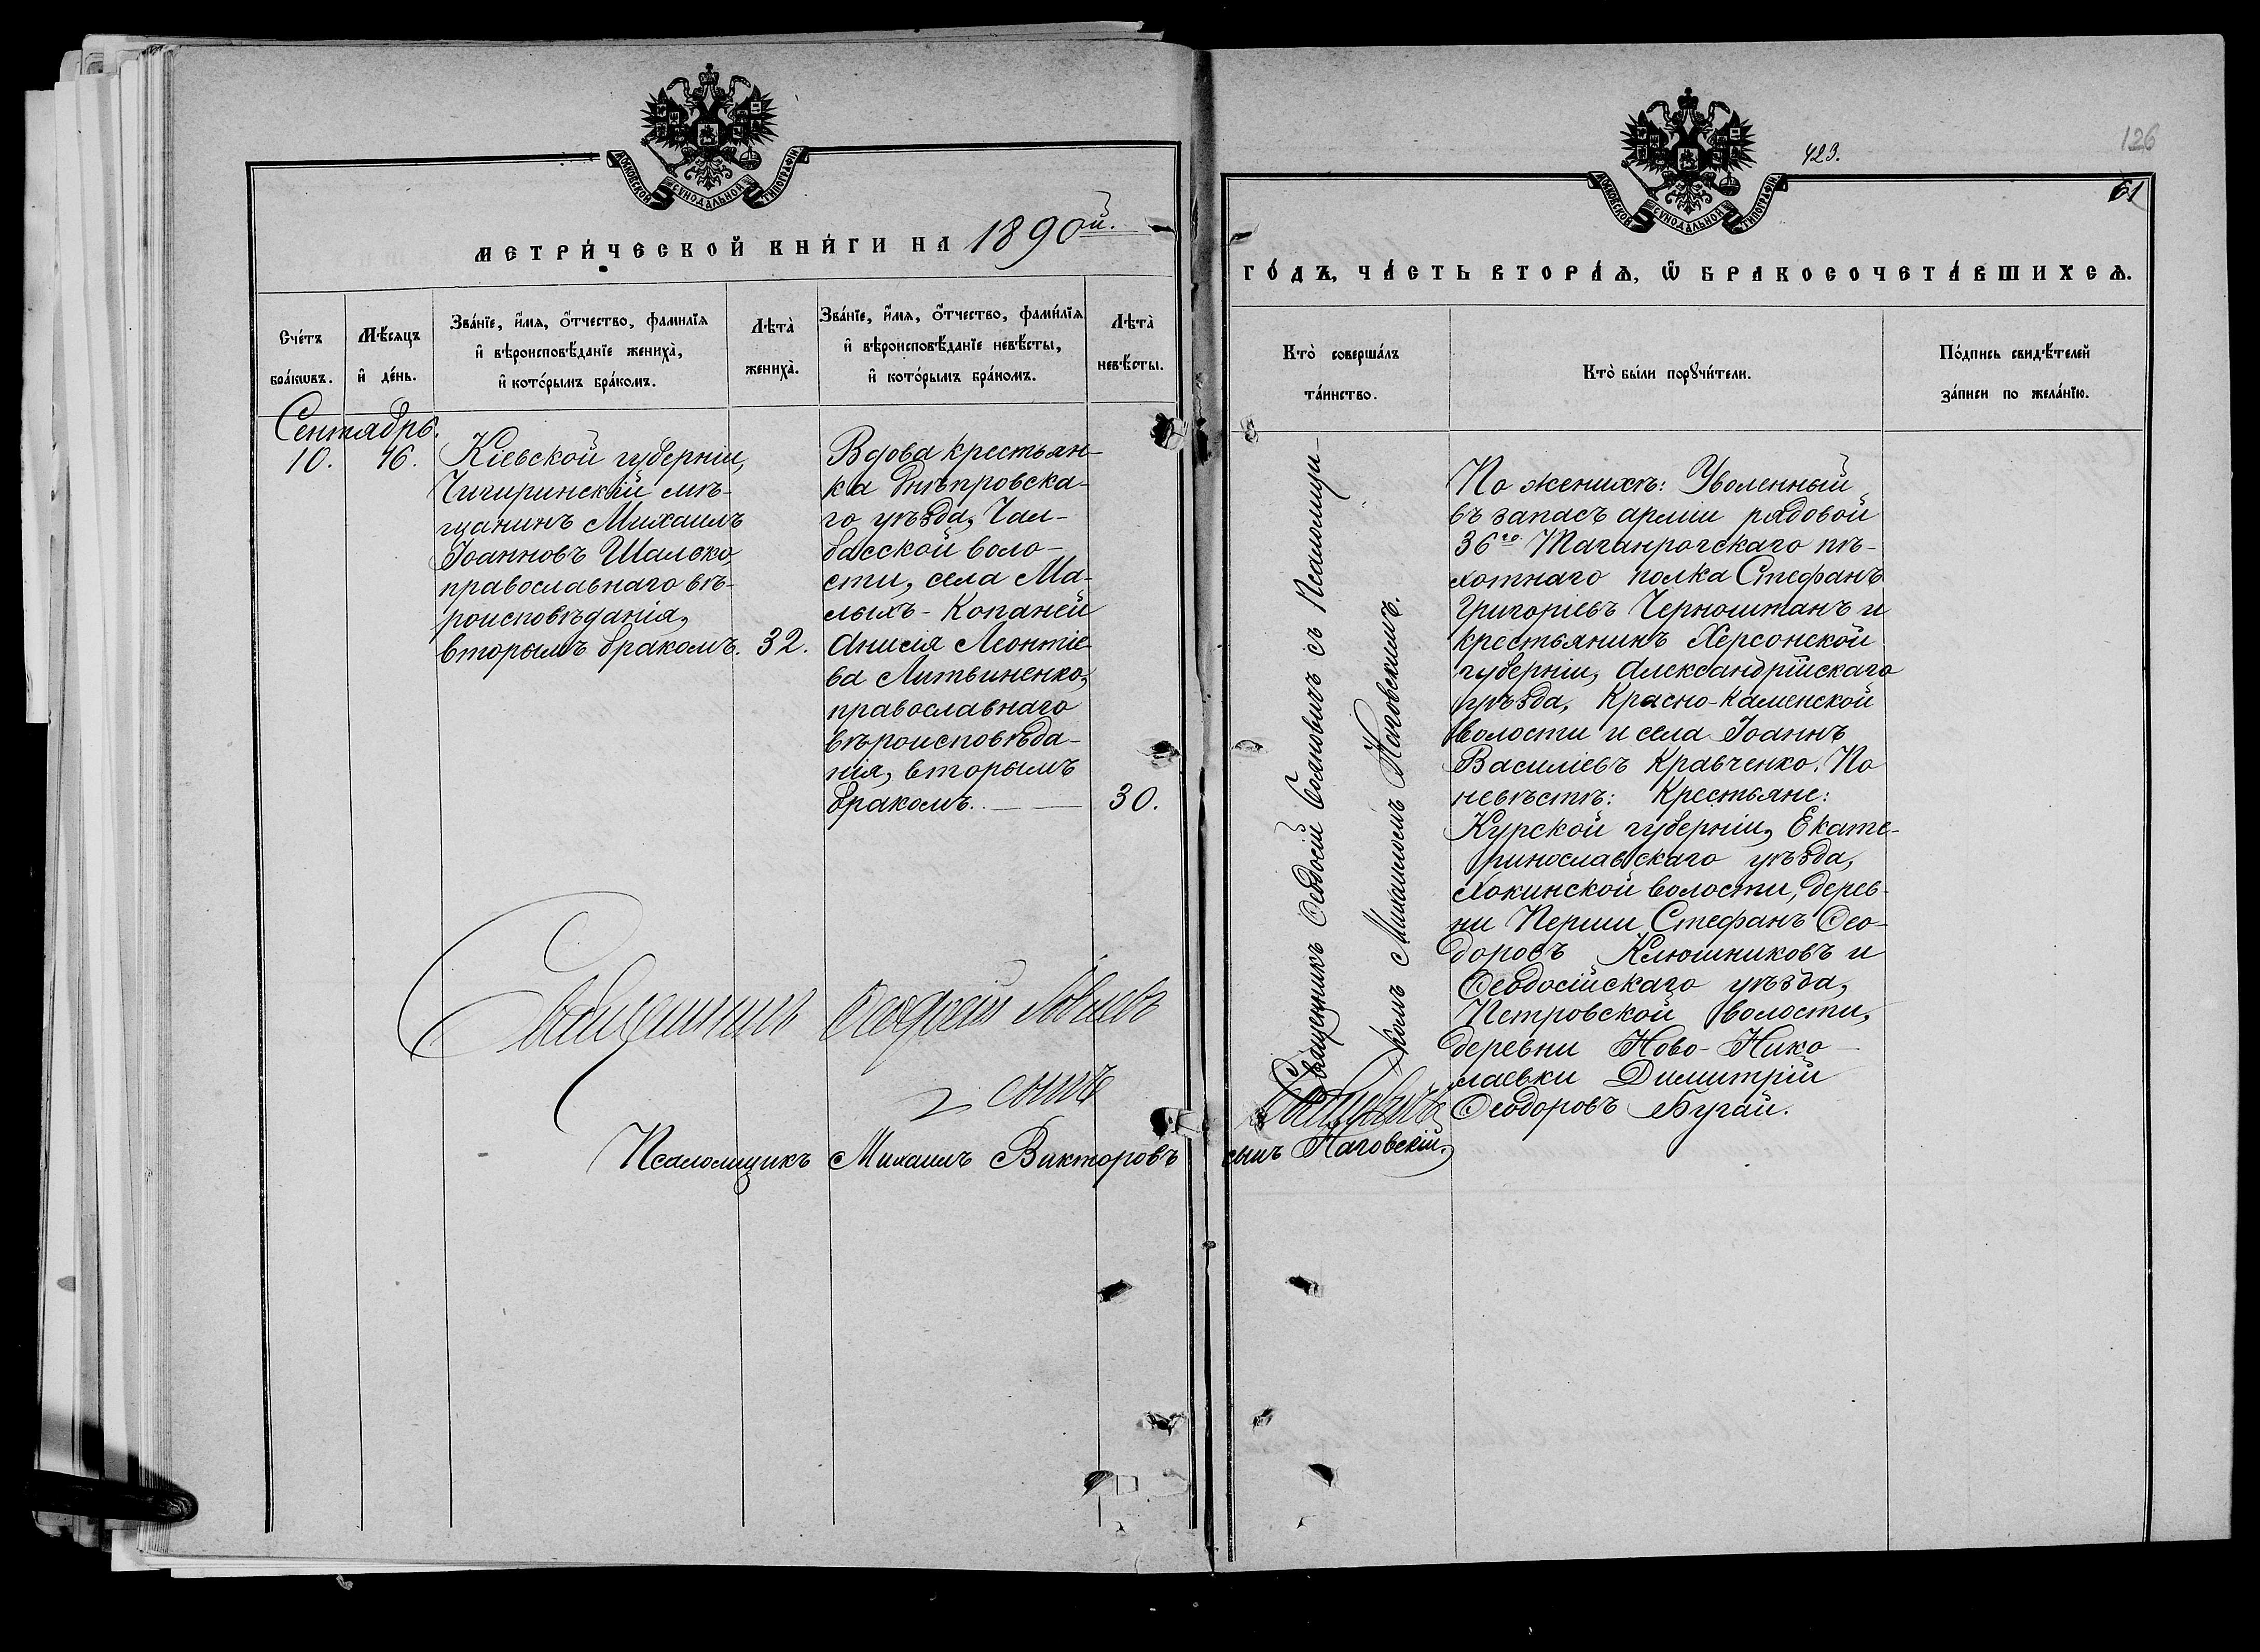 МОСКОВСКОЙ СУНОДАЛЬНОЙ ТИПОГРАФІИ
МЕТРИ́ЧЕСКОЙ КНИ́ГИ НА 1890ый.
Сче́тъ бра́кѡвъ.
Мѣ́сяцъ и҆ де́нь.
Зва́нїе, и҆́мя, ѻ҆́тчество, фами́лїя
и҆ вѣроисповѣ́данїе жениха̀,
и҆ кото́рымъ бра́комъ.
Лѣта̀
жениха̀.
Зва́нїе, и҆́мя, ѻ҆́тчество, фами́лїя
и҆ вѣроисповѣ́данїе невѣ́сты,
и҆ кото́рымъ бра́комъ.
Лѣта̀
невѣ́сты.
Сентябрь.
10. 16.
Кіевской губерніи,
Чигиринскій мѣ-
щанинъ Михаилъ
Іоанновъ Шалько,
православнаго вѣ-
роисповѣданія,
вторымъ бракомъ. 32.
Вдова крестьян-
ка Днѣпровска-
го уѣзда, Чал-
басской воло-
сти, села Ма-
лыхъ-Копаней
Анисія Леонтіе-
ва Литвиненко,
православнаго
вѣроисповѣда-
нія, вторымъ
бракомъ. — 30.
Священникъ Ѳеодосій
сынъ
Псаломщикъ Михаилъ Викторовъ сынъ Наговскій.
423.
126
61
МОСКОВСКОЙ СУНОДАЛЬНОЙ ТИПОГРАФІИ
ГО́ДЪ, ЧА́СТЬ ВТОРА́Ѧ, Ѽ БРАКОСОЧЕТА́ВШИХСѦ.
Кто̀ соверша́лъ
та́инство.
Кто̀ бы́ли порꙋчи́тели.
По́дпись свидѣ́телей
за́писи по жела́нїю.
Священникъ Ѳеодосій съ Псаломщи-
комъ Михаиломъ Наговскимъ.
По женихѣ: Уволенный
въ запасъ арміи рядовой
36го Таганрогскаго пѣ-
хотнаго полка Стефанъ
Григоріевъ Черноштанъ и
крестьянинъ Херсонской
губерніи, Александрійскаго
уѣзда, Красно-Каменской
волости и села Іоаннъ
Василіевъ Кравченко. По
невѣстѣ: Крестьяне:
Курской губерніи, Екате-
ринославскаго уѣзда,
Хокинской волости, дерев-
ни Перши Стефанъ Ѳео-
доровъ Клюшниковъ и
Ѳеодосійскаго уѣзда,
Петровской волости,
деревни Ново-Нико-
лаевки Димитрій
Ѳеодоровъ Бугай.